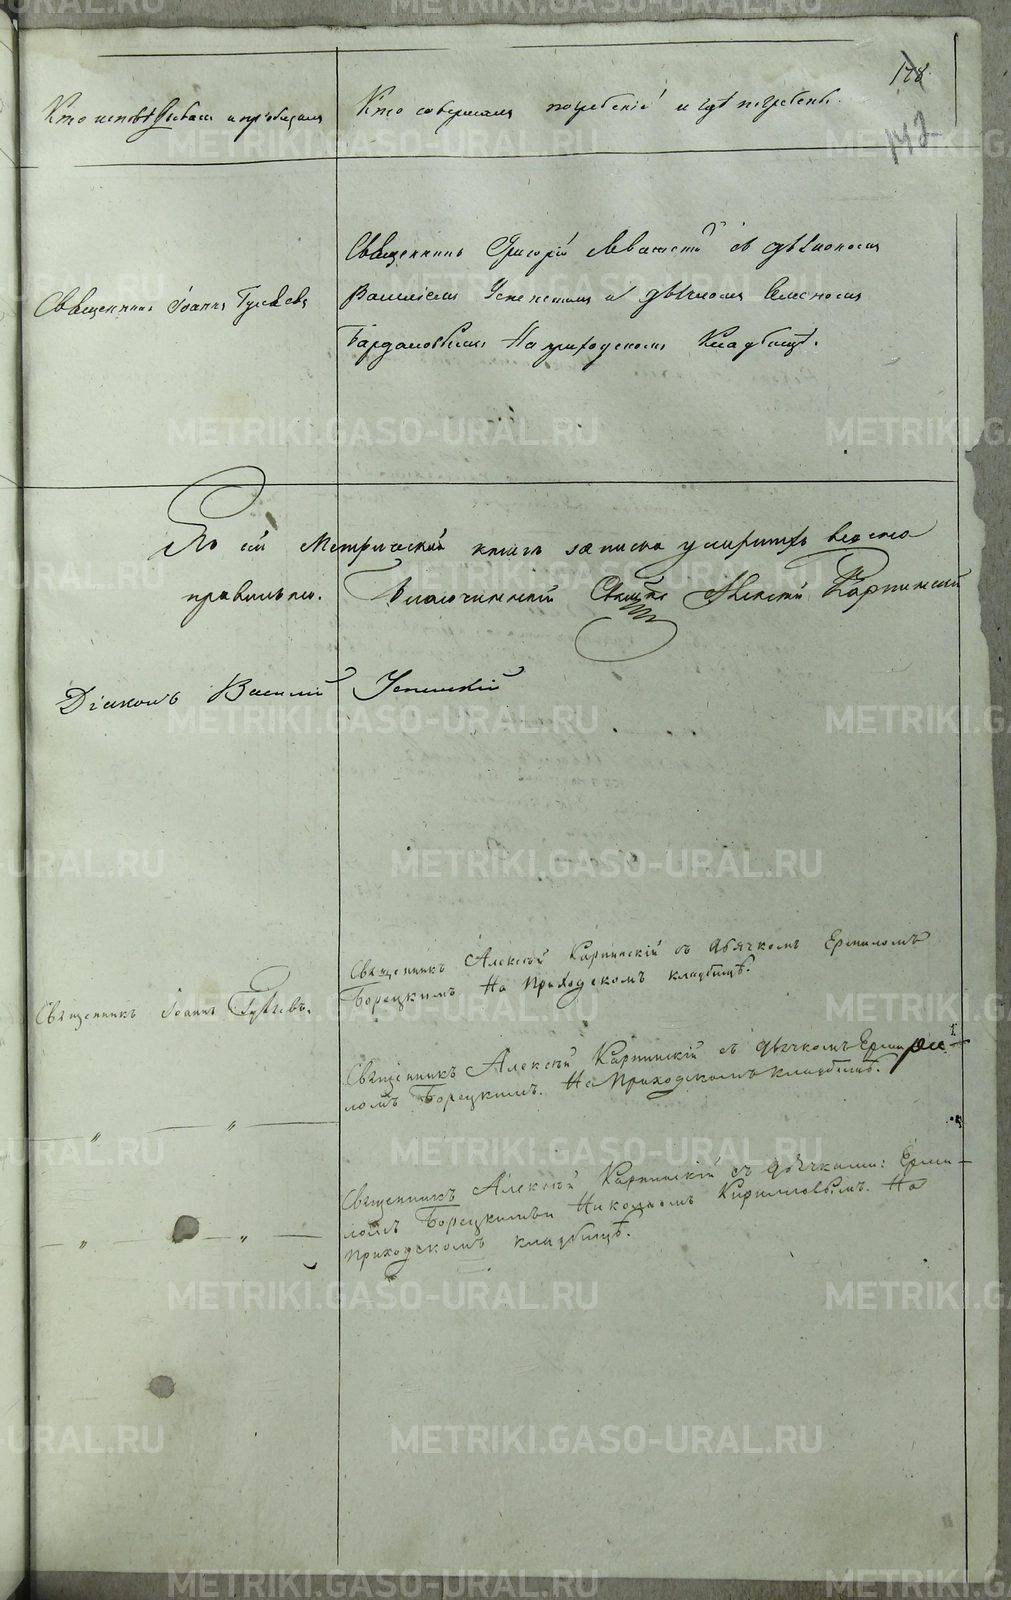 178
142
Кто исповѣдывалъ и пріобщалъ
Кто совершалъ погребеніе и гдѣ погребены.
Священникъ Іоаннъ
Священникъ Григорій съ діакономъ
Василіемъ и дьячкомъ
На приходскомъ кладбищѣ.
Въ сей Метрической книгѣ записка умершихъ ведена
правильно. Благочинный Алексѣй Карпинскій
Діаконъ Василій
Священникъ Іоаннъ
Священникъ Алексѣй Карпинскій съ дьячкомъ Ермиломъ
Борецкимъ На Приходскомъ кладбищѣ.
Священникъ Алексѣй Карпинскій съ дьячкомъ Ерми-
ломъ Борецкимъ. На Приходскомъ кладбищѣ.
— „ — „ —
Священникъ Алексѣй Карпинскій съ дьячками: Ерми-
ломъ Борецкимъ и Николаемъ Кирилловымъ. На
Приходскомъ кладбищѣ.
— „ — „ —
METRIKI.GASO-URAL.RU